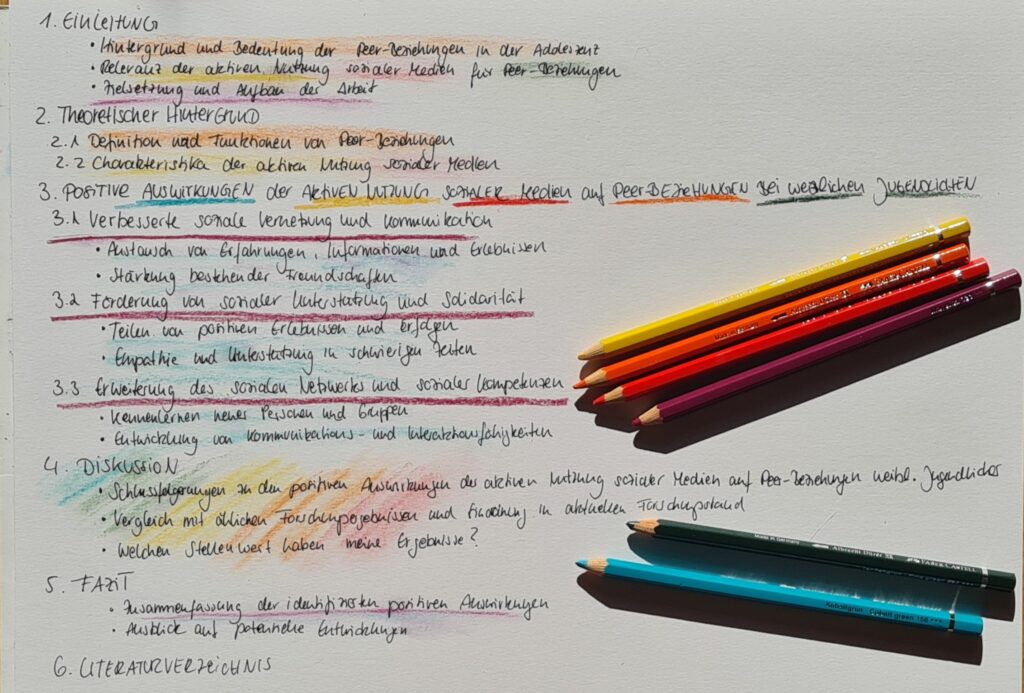 1. EINLEITUNG
• Hintergrund und Bedeutung der Peer-Beziehungen in der Adoleszenz
• Relevanz der aktiven Nutzung sozialer Medien für Peer-Beziehungen
• Zielsetzung und Aufbau der Arbeit
2. Theoretischer HINTERGRUND
2.1 Definition und Funktionen von Peer-Beziehungen
2.2 Charakteristika der aktiven Nutzung sozialer Medien
3. POSITIVE AUSWIRKUNGEN der AKTIVEN NUTZUNG SOZIALER Medien auf PEER-BEZIEHUNGEN BEI weiblichen JUGENDLICHEN
3.1 Verbesserte soziale Vernetzung und Kommunikation
• Austausch von Erfahrungen, Informationen und Erlebnissen
• Stärkung bestehender Freundschaften
3.2 Förderung von sozialer Unterstützung und Solidarität
• Teilen von positiven Erlebnissen und Erfolgen
• Empathie und Unterstützung in schwierigen Zeiten
3.3 Erweiterung des sozialen Netzwerks und sozialer Kompetenzen
• Kennenlernen neuer Personen und Gruppen
• Entwicklung von Kommunikations- und Interaktionsfähigkeiten
4. DISKUSSION
• Schlussfolgerungen zu den positiven Auswirkungen der aktiven Nutzung sozialer Medien auf Peer-Beziehungen weibl. Jugendlicher
• Vergleich mit ähnlichen Forschungsergebnissen und Einordnung in aktuellen Forschungsstand
• Welchen Stellenwert haben meine Ergebnisse?
5. FAZIT
• Zusammenfassung der identifizierten positiven Auswirkungen
• Ausblick auf potentielle Entwicklungen
6. LITERATURVERZEICHNIS
Made in Germany
FABER-CASTELL
Kobaltgrün Cobalt green 156 ***